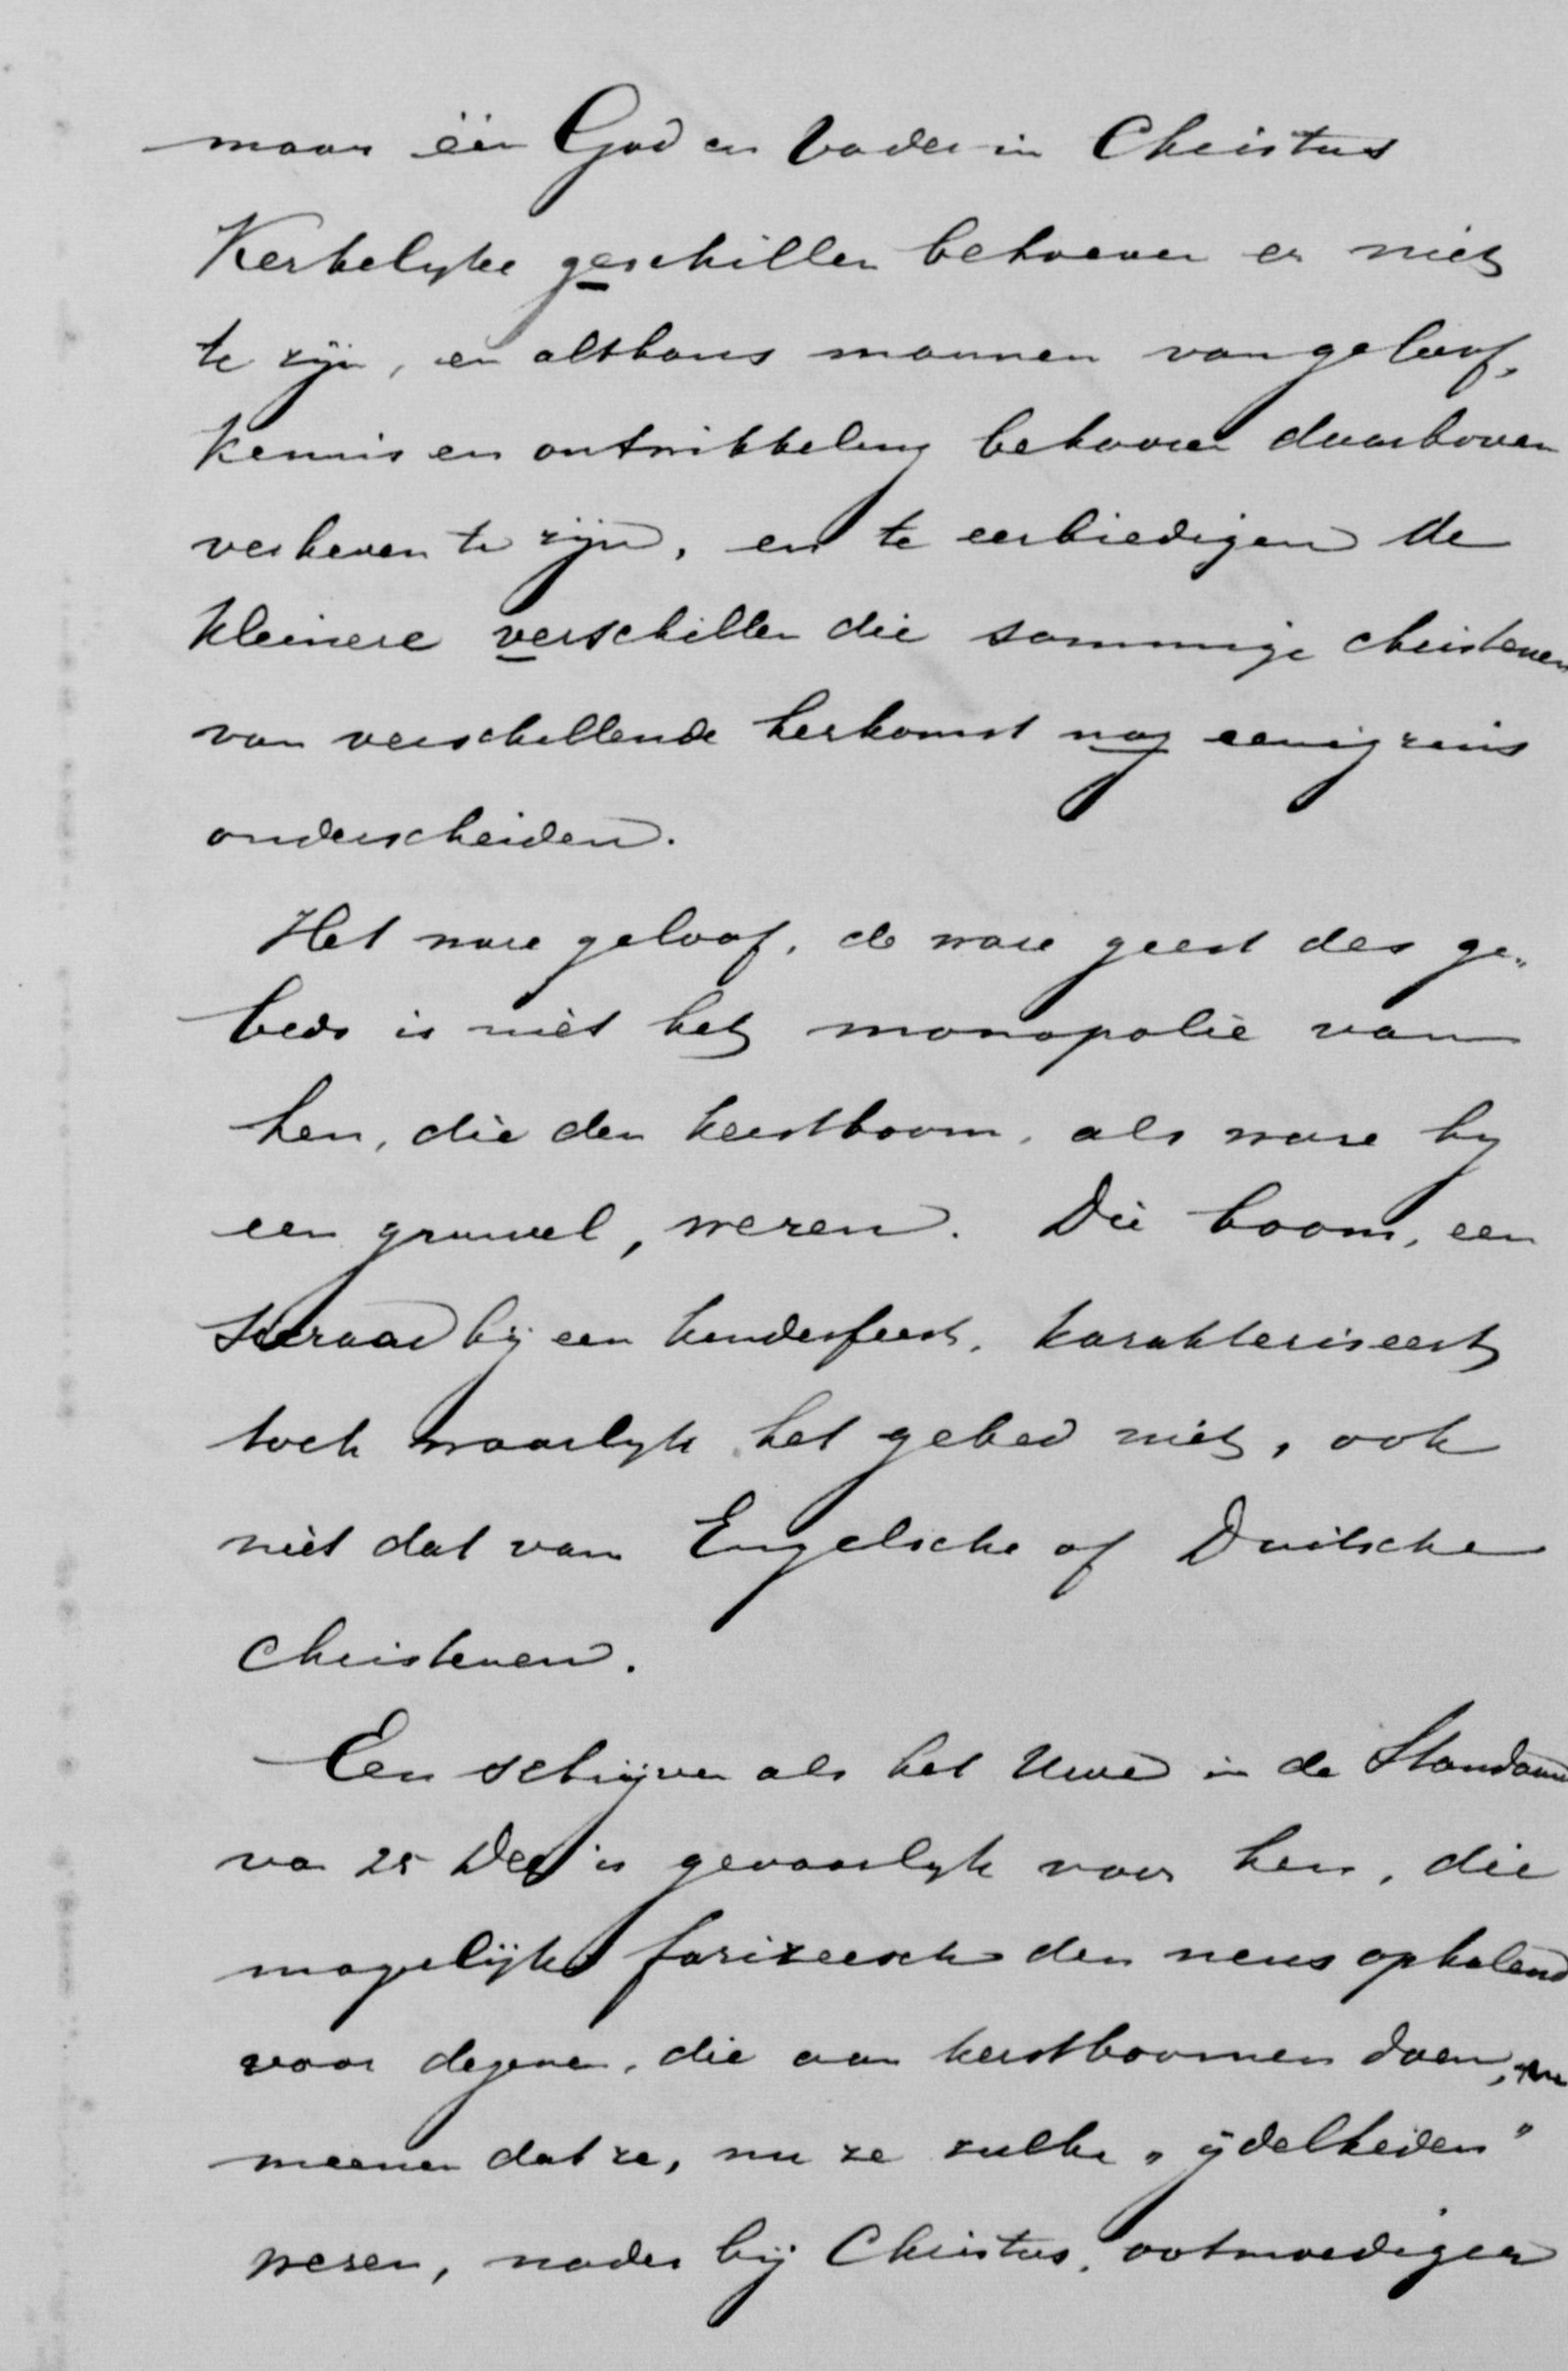 maar één God en Vader in Christus
Kerkelyke geschillen behoeven er niet
te zijn, en althans mannen van geloof,
kennis en ontwikkeling behooren daarboven
verheven te zijn, en te eerbiedigen de
kleinere verschillen die sommige christenen
van verschillende herkomst nog eenigzins
onderscheiden.
Het ware geloof, de ware geest des ge-
beds is niet het monopolie van
hen, die den kerstboom, als ware hy
een gruwel, weren. Die boom, een
sieraad bij een kinderfeest, karakteriseert
toch waarlyk het gebed niet, ook
niet dat van Engelsche of Duitsche
Christenen.
Een schrijven als het Uwe in de Standaard
van 25 Dec is gevaarlyk voor hen, die
mogelijk farizeesch den neus ophalend
voor degenen, die aan kerstboomen doen,
meenen dat ze, nu ze zulke „ijdelheden"
weren, nader bij Christus, ootmoediger